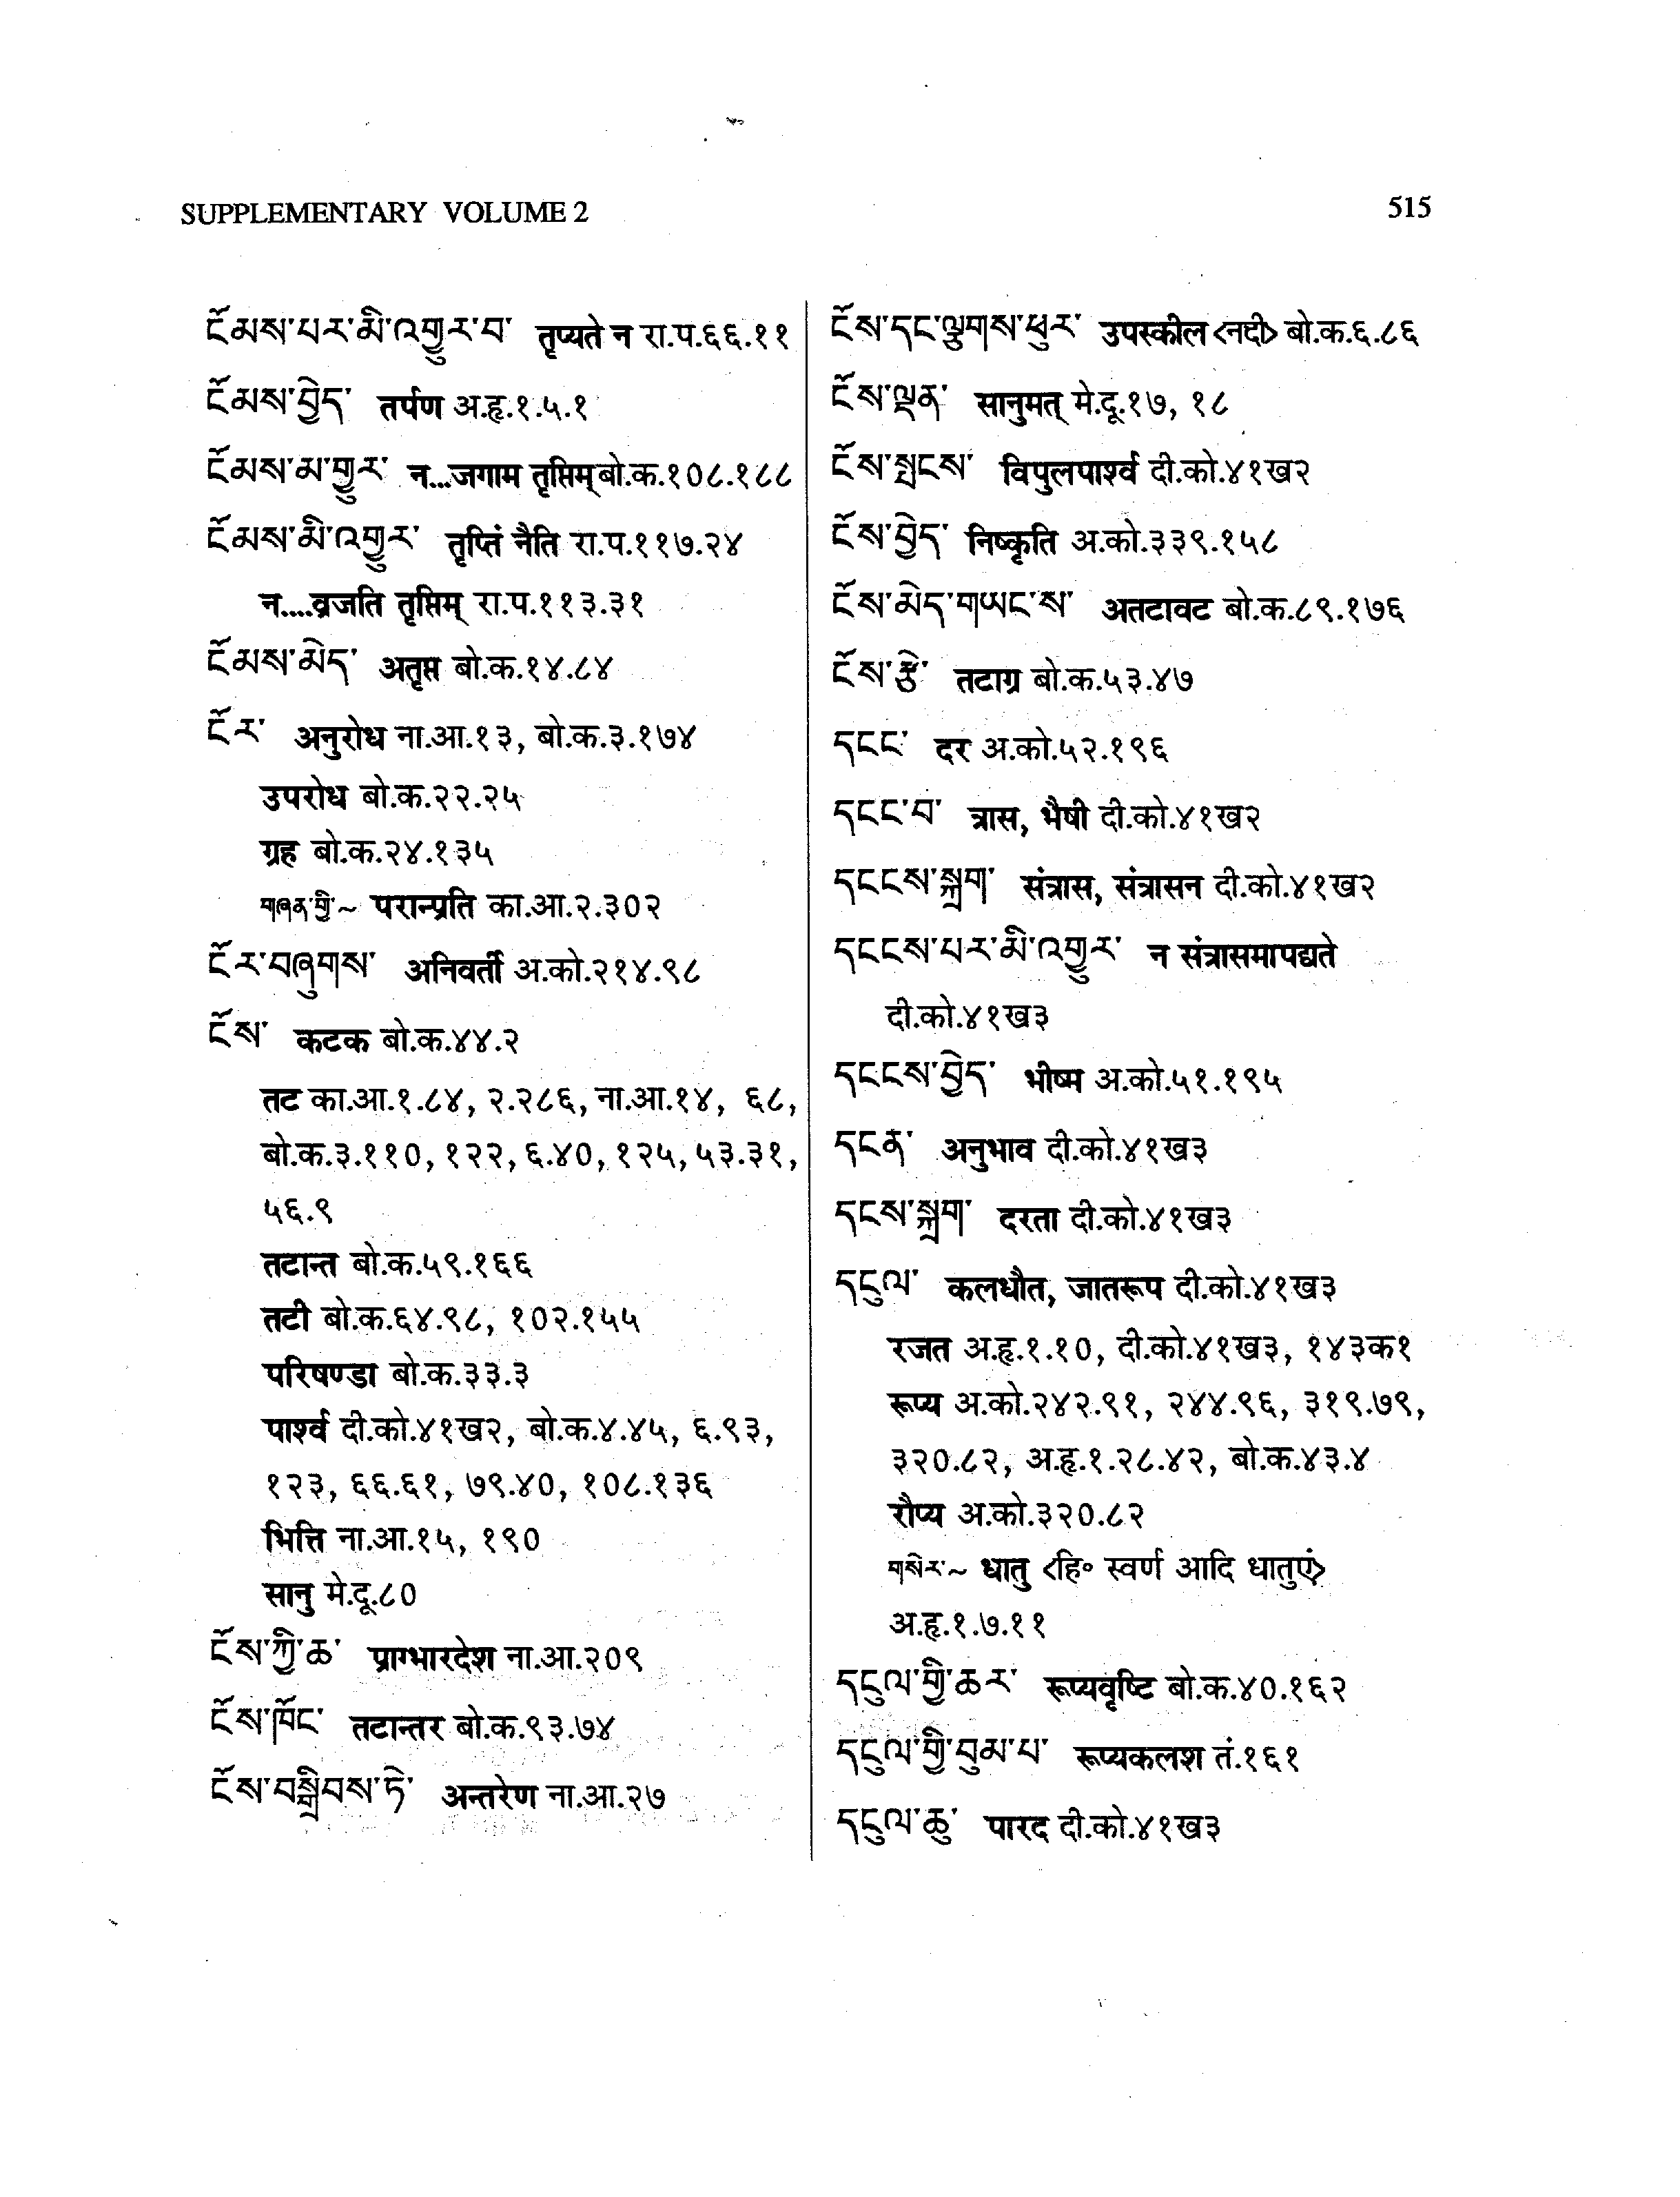 SUPPLEMENTARY VOLUME 2
515
ངོམས་པར་མི་འགྱུར་བ་ तृप्यते न रा.प.६६.११
ངོམས་བྱེད་ तर्पण अ.हृ.१.५.१
ངོམས་མ་གྱུར་ न...जगाम तृप्तिम् बो.क.१०८.१८८
ངོམས་མི་འགྱུར་ तृप्तिं नैति रा.प.११७.२४
न....व्रजति तृप्तिम् रा.प.११३.३१
ངོམས་མེད་ अतृप्त बो.क.१४.८४
ངོར་ अनुरोध ना.आ.१३, बो.क.३.१७४
उपरोध बो.क.२२.२५
ग्रह बो.क.२४.१३५
གཞན་གྱི་~ परान्प्रति का.आ.२.३०२
ངོར་བཞུགས་ अनिवर्ती अ.को.२१४.९८
ངོས་ कटक बो.क.४४.२
तट का.आ.१.८४, २.२८६, ना.आ.१४, ६८,
बो.क.३.११०, १२२, ६.४०, १२५, ५३.३१,
५६.९
तटान्त बो.क.५९.१६६
तटी बो.क.६४.९८, १०२.१५५
परिषण्डा बो.क.३३.३
पार्श्व दी.को.४१ख२, बो.क.४.४५, ६.९३,
१२३, ६६.६१, ७९.४०, १०८.१३६
भित्ति ना.आ.१५, १९०
सानु मे.दू.८०
ངོས་ཀྱི་ཆ་ प्राग्भारदेश ना.आ.२०९
ངོས་ཁོང་ तटान्तर बो.क.९३.७४
ངོས་བསྒྲིབས་ཏེ་ अन्तरेण ना.आ.२७
ངོས་དང་ལྕུགས་ཕུར་ उपस्कील <नदी> बो.क.६.८६
ངོས་ལྡན་ सानुमत् मे.दू.१७, १८
ངོས་སྤངས་ विपुलपार्श्व दी.को.४१ख२
ངོས་བྱེད་ निष्कृति अ.को.३३९.१५८
ངོས་མེད་གཡང་ས་ अतटावट बो.क.८९.१७६
ངོས་རྩེ་ तटाग्र बो.क.५३.४७
དངང་ दर अ.को.५२.१९६
དངང་བ་ त्रास, भैषी दी.को.४१ख२
དངངས་སྐྲག་ संत्रास, संत्रासन दी.को.४१ख२
དངངས་པར་མི་འགྱུར་ न संत्रासमापद्यते
दी.को.४१ख३
དངངས་བྱེད་ भीष्म अ.को.५१.१९५
དངན་ अनुभाव दी.को.४१ख३
དངས་སྐྲག་ दरता दी.को.४१ख३
དངུལ་ कलधौत, जातरूप दी.को.४१ख३
रजत अ.हृ.१.१०, दी.को.४१ख३, १४३क१
रूप्य अ.को.२४२.९१, २४४.९६, ३१९.७९,
३२०.८२, अ.हृ.१.२८.४२, बो.क.४३.४
रौप्य अ.को.३२०.८२
གསེར་~ धातु <हि॰ स्वर्ण आदि धातुएं>
अ.हृ.१.७.११
དངུལ་གྱི་ཆར་ रूप्यवृष्टि बो.क.४०.१६२
དངུལ་གྱི་བུམ་པ་ रूप्यकलश तं.१६१
དངུལ་ཆུ་ पारद दी.को.४१ख३